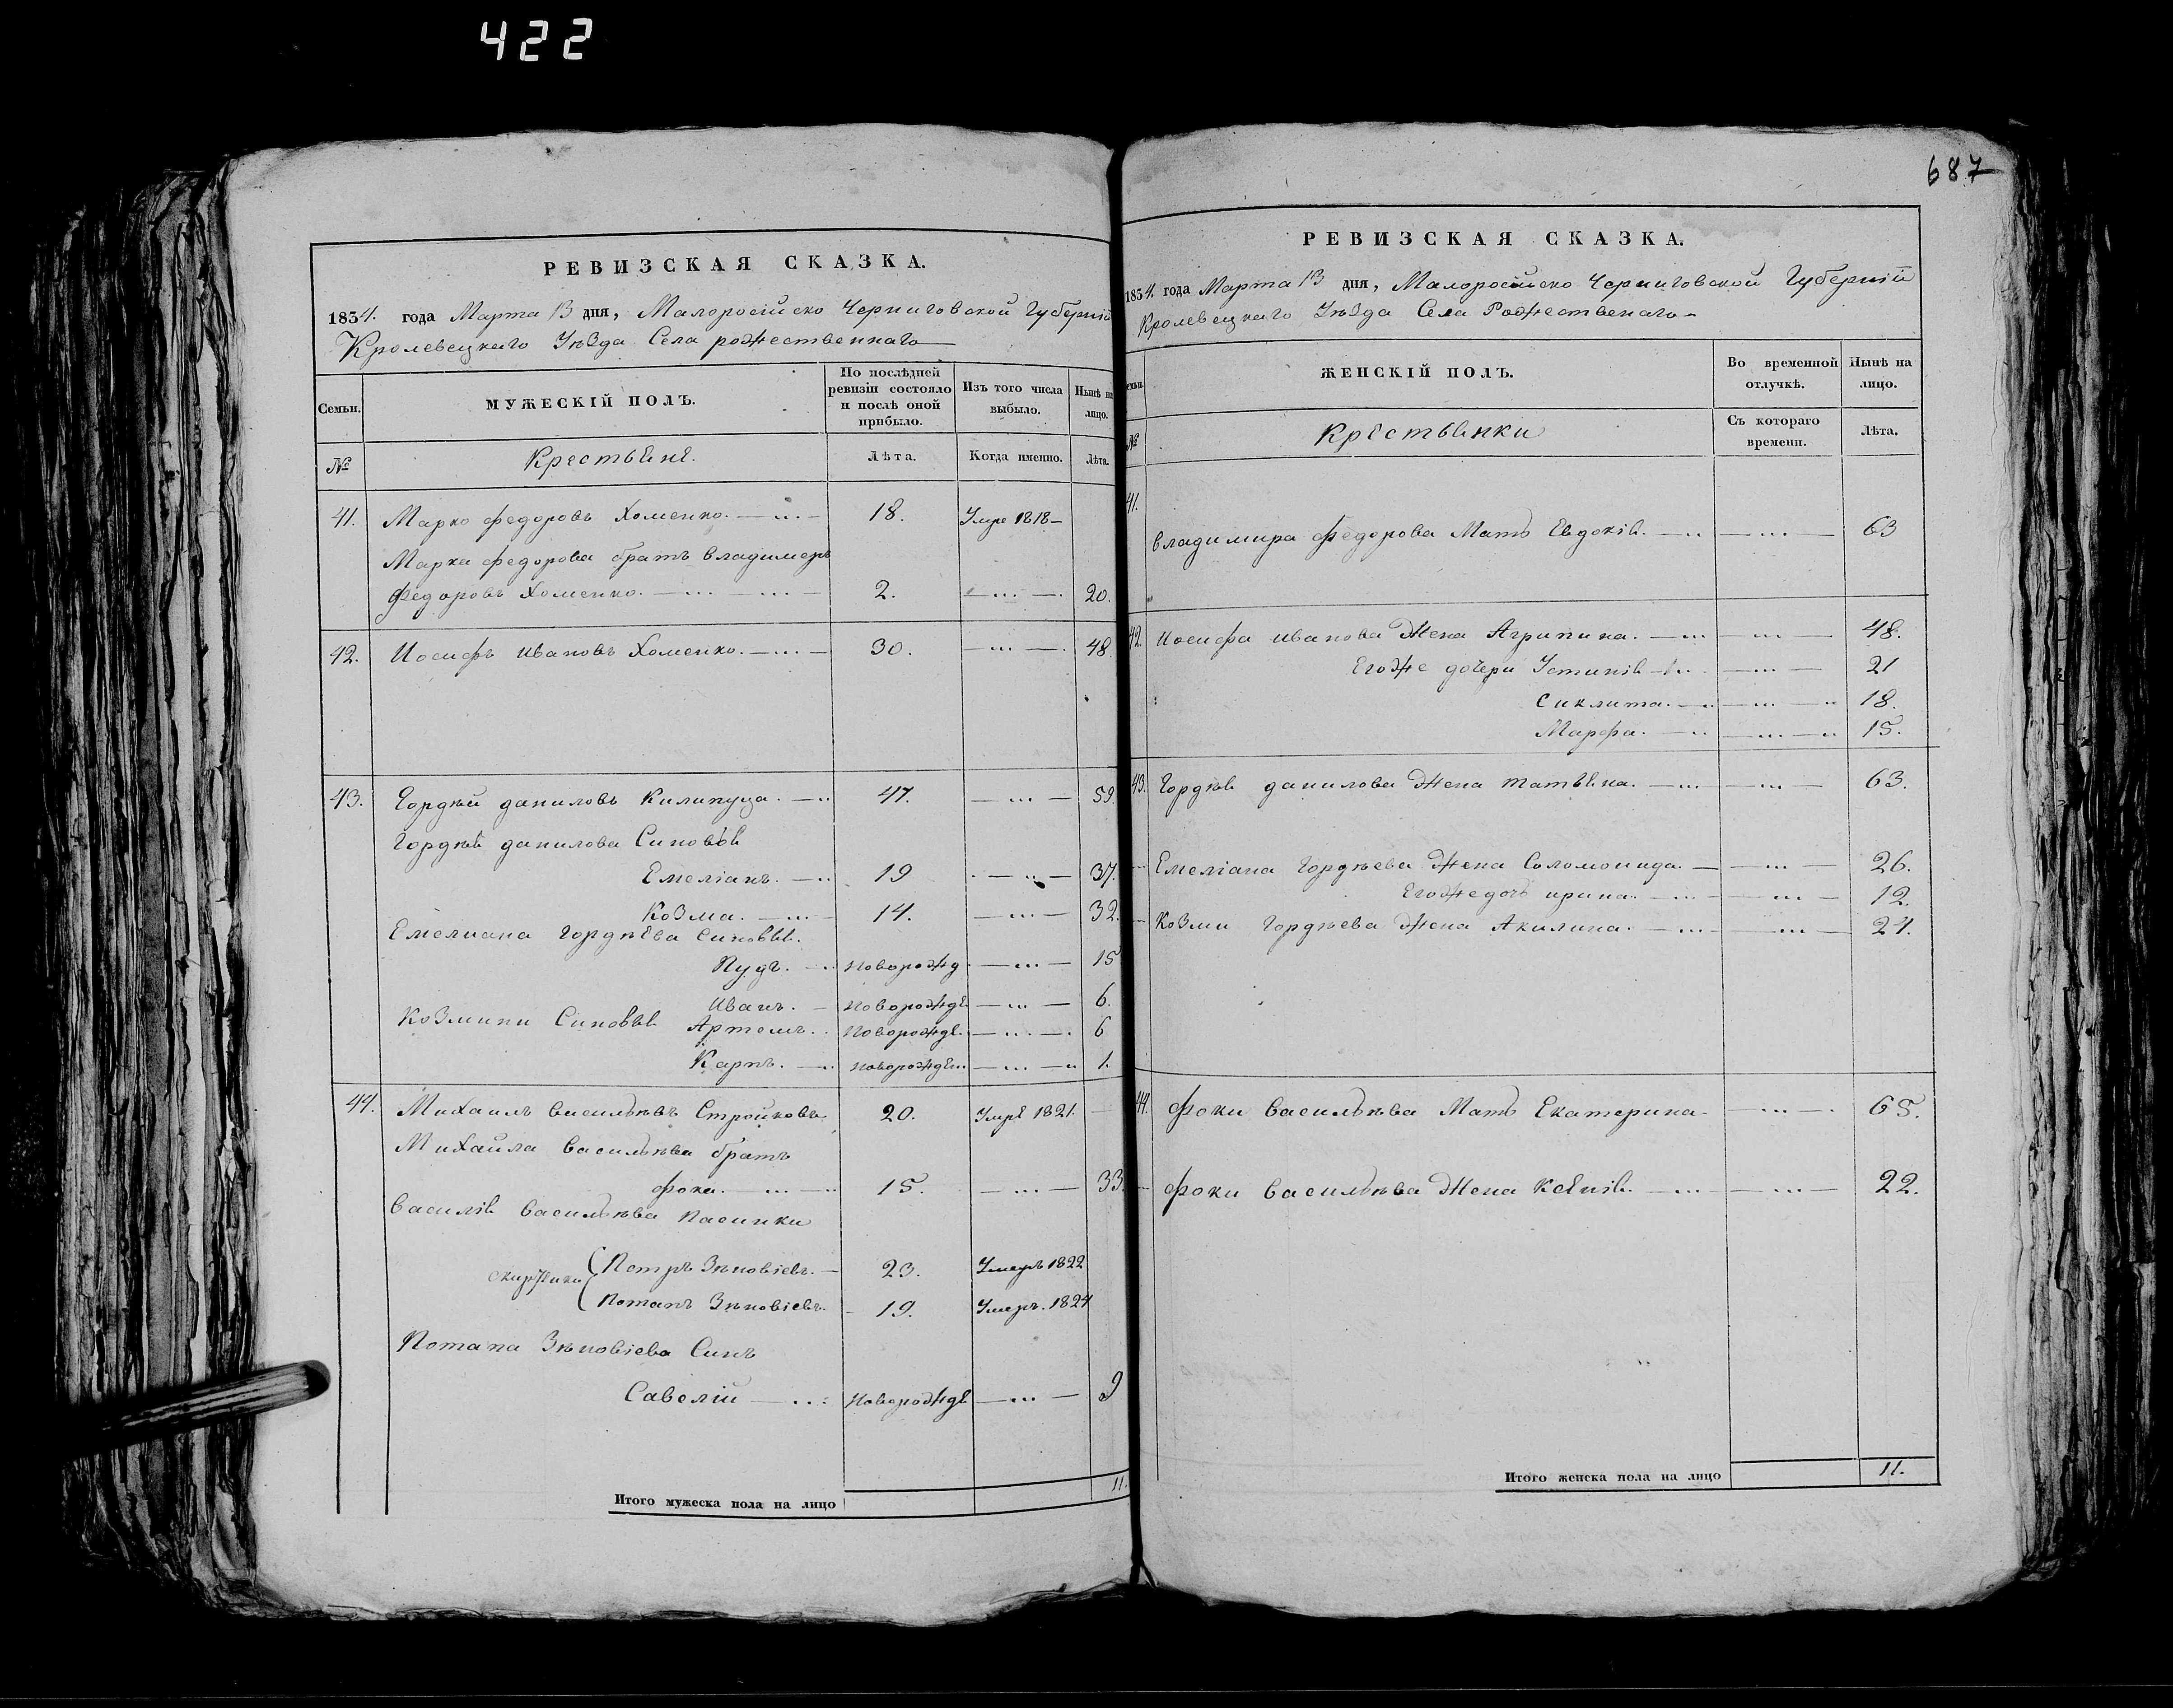 422
687
РЕВИЗСКАЯ СКАЗКА.
1834. года Марта 13 дня, Малоросійско Черниговской Губерній
Кролевецкаго Уѣзда Села рожественнаго
Семьи. МУЖЕСКІЙ ПОЛЪ. По послѣдней ревизіи состояло и послѣ оной прибыло. Изъ того числа выбыло. Нынѣ на лицо.
№ Крестьяне. Лѣта. Когда именно. Лѣта.
41. Марко федоровъ Хоменко. 18. Умре 1818
Марка федорова братъ владимеръ
федоровъ Хоменко. 2. 20.
42. Иосифъ ивановъ Хоменко. 30. 48
43. Гордѣй даниловъ Килипуца. 47. 59.
Гордѣя данилова Синовья
Емеліанъ. 19 37.
Козма. 14. 32.
Емелиана Гордѣева синовья.
Пудъ. новорожд 15
Иванъ. новорожде 6.
Козмини Синовья Артемъ. новорожде. 6
Карпъ. новорожден 1.
44. Михаилъ васильевъ Стройковъ 20. Умре 1821.
Михайла васильѣва братъ
фока. 15. 33.
василія васильѣва пасинки
{Петръ Зѣновіевъ. 23. Умеръ 1822
{Потапъ Зѣновіевъ. 19. Умеръ. 1824
Потапа Зѣновіева Синъ
Савелій новорожде 9
Итого мужеска пола на лицо 11.
РЕВИЗСКАЯ СКАЗКА.
1834. года Марта 13 дня, Малоросійско Черниговской Губерній
Кролевецкаго Уѣзда Села Рожественаго
Семьи. ЖЕНСКІЙ ПОЛЪ. Во временной отлучкѣ. Нынѣ на лицо.
№ Крестьянки Съ котораго времени. Лѣта.
41. владимира федорова Мать Евдокія. 63
42. Иосифа иванова Жена Агрипина. 48.
Егоже дочери Устинія 21
Сиклита. 18.
Марфа. 15.
43. Гордѣя данилова Жена татьяна. 63.
Емеліана Гордѣева Жена Соломонида. 26.
Егоже дочь ирина. 12.
Козми Гордѣева Жена Акилина. 24.
44. фоки васильѣва Мать Екатерина 65.
фоки васильѣва Жена Ксенія. 22.
Итого женска пола на лицо 11.